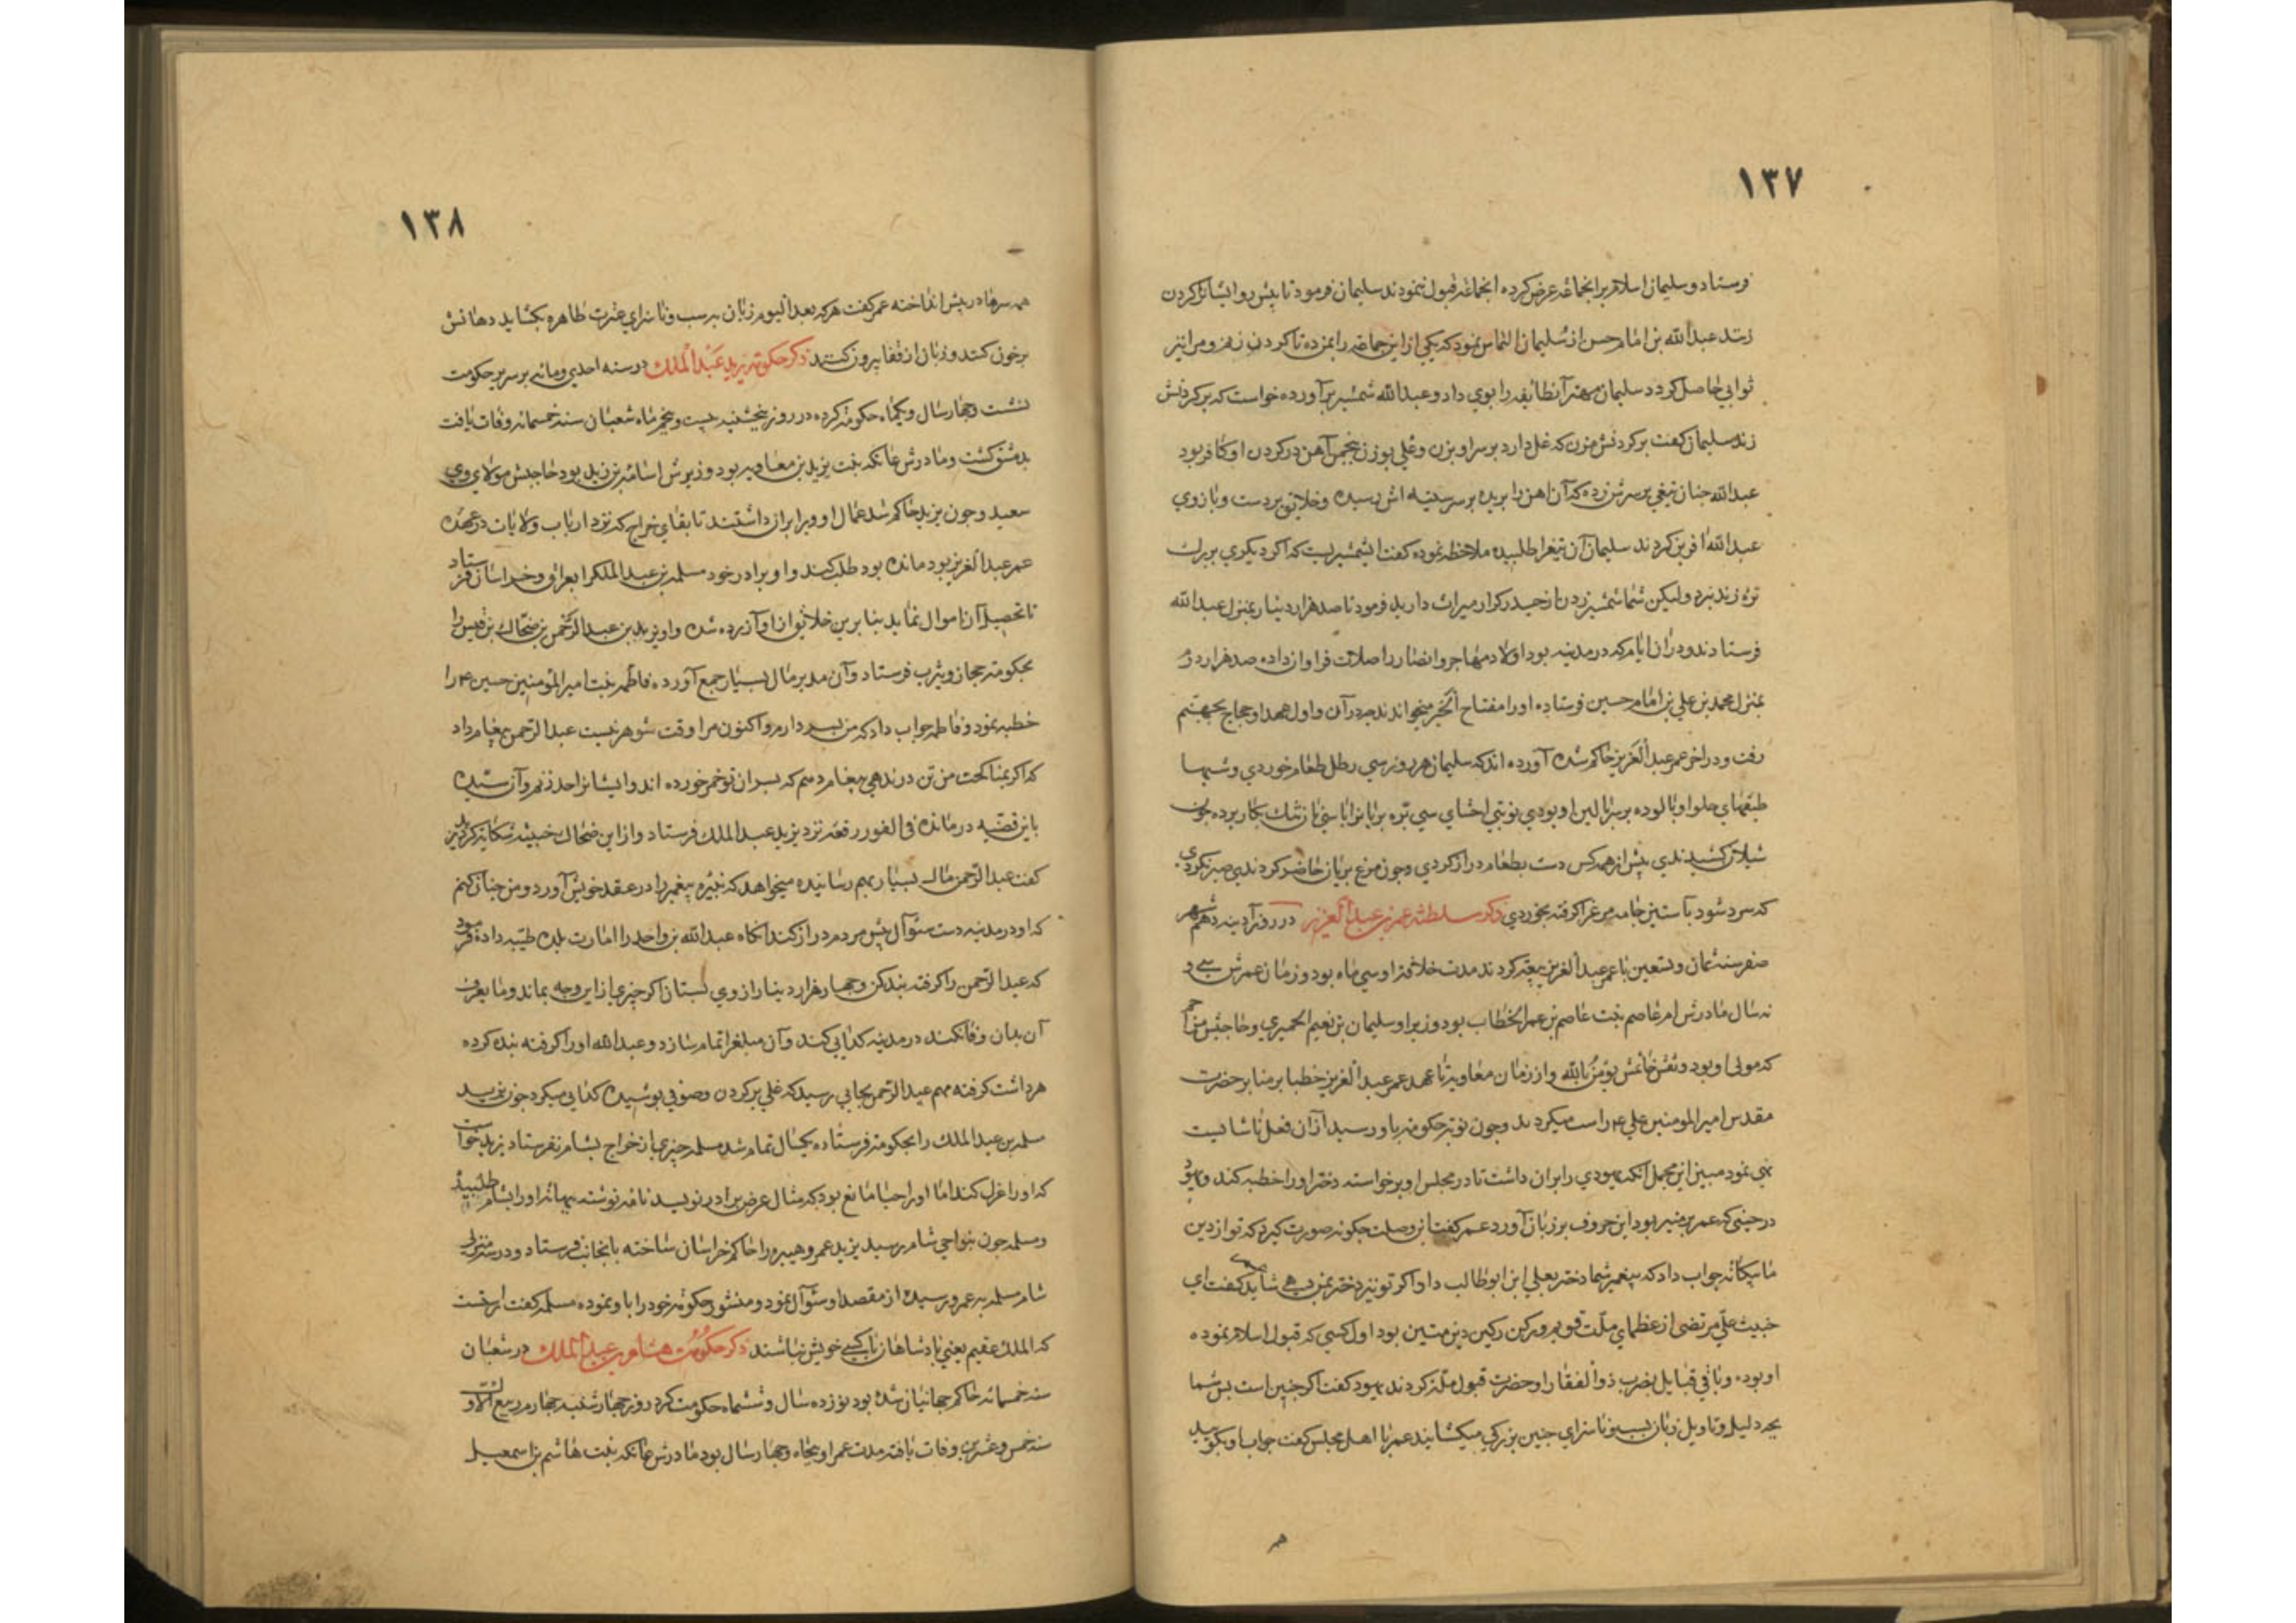 ١٣٧
وستاد و سلیمان اسلام بر انجماعه عرض کرده انجماعه قبول ننمودند سلیمان فرمود تا پیش رو ایشانرا کردن
زنند عبدالله بن امام حسن از سلیمان التماس نمود که یکی از این جماعه را بمن ده تا کردن زنم و مرا نیز
ثوابی حاصل کردد سلیمان مهتر آنطایفه را بوی داد و عبدالله شمشیر برآورده خواست که بر کردنش
زند سلیمان کفت بر کردنش مزن که غل دارد بر سر او بزن و غلی بوزن پنجمن آهن در کردن او کافر بود
عبدالله چنان تیغی بر سرش زده که آن اهن را بریده بر سر سینه اش رسیده و خلایق بر دست و بازوی
عبدالله افرین کردند سلیمان آن تیغرا طلبیده ملاحظه نموده کفت اینشمشیریست که اکر دیکری بر برک
تره زند نبرد ولیکن شما شمشیر زدن از حیدر کرار میراث دارید فرمود تا صد هزار دینار بمنزل عبدالله
فرستادند و در ان ایام که در مدینه بود اولاد مهاجر و انصار را صلات فراوان داده صد هزار دو
بمنزل محمد بن علی بن امام حسین فرستاده او را مفتاح الخیر میخواندند در آن و اول عهد او حجاج بجهنم
رفت و در اخر عمر عبدالعزیز حاکم شده آورده اند که سلیمان هر روز سی رطل طعام خوردی و شبها
طبقهای حلوا و پالوده بر سر بالین او بودی نوبتی احشای سی بره بریانرا با سی نان تنک بکار برده چون
شیلان کشیدندی پیش از همه کس دست بطعام دراز کردی و چون مرغ بریان حاضر کردندی صبر نکردی
که سرد شود بآستین جامه مرغرا کرفته بخوردی ذکر سلطنة عمر بن عبدالعزیز در روز آدینه دهم شهر
صفر سنه ثمان و تسعین با عمر عبدالعزیز بیعة کردند مدت خلافة او سی ماه بود و زمان عمرش سی و
نه سال مادرش ام عاصم بنت عاصم بن عمر الخطاب بود وزیر او سلیمان بن نعیم الحمیری و حاجبش مزاحم
که مولی او بود و نقش خاتمش یؤمن بالله و از زمان معاویه تا عهد عمر عبدالعزیز خطبا بر منابر حضرت
مقدس امیر المومنین علی ع را سب میکردند و چون نوبة حکومة باو رسید از آن فعل ناشایست
نهی نمود مبین این مجمل انکه یهودی را بران داشت تا در مجلس او برخواسته دختر او را خطبه کند و یهود
در حینی که عمر بر منبر بود این حروف بر زبان آورد عمر کفت این وصلت چکونه صورت کیرد که تو از دین
ما بیکانه جواب داد که پیغمبر شما دختر بعلی ابن ابوطالب داد اکر تو نیز دختر بمن دهی شاید کفت ای
خبیث علی مرتضی از عظمای ملت قویم و رکن رکین دین متین بود اول کسی که قبول اسلام نموده
او بوده و باقی قبایل بضرب ذوالفقار او حضرت قبول ملة کردند یهود کفت اکر چنین است پس شما
بچه دلیل و تاویل زبان بسب و ناسزای چنین بزرکی میکشایید عمر با اهل مجلس کفت جواب او بکویید
هم
١٣٨
همه سرها در پیش انداخته عمر کفت هر که بعد الیوم زبان به سب و ناسزای عترت طاهره بکشاید دهانش
پرخون کنند و زبان از قفا بیرون کنند ذکر حکومة یزید عبدالملک در سنه احدی ومائه بر سریر حکومت
نشست و چهار سال و یکماه حکومة کرده در روز پنجشنبه بیست و پنجم ماه شعبان سنه خمسمائه وفات یافت
بدمشق کشت و مادرش عاتکه بنت یزید بن معاویه بود وزیرش اسامة بن زید بود حاجبش مولای وی
سعید و چون یزید حاکم شد عمال او ویرا بران داشتند تا بقای خراج که نزد ارباب ولایات در عهد
عمر عبدالعزیز بود مانده بود طلب کند و او برادر خود مسلمه بن عبدالملکرا بعراق و خراسان فرستاد
تا تحصیل آن اموال نماید بنا برین خلایق از او آزرده شده و او نیز بدین عبدالرحمن بن ضحاک بن قیس را
بحکومة حجاز و یثرب فرستاد و آن مدبر مال بسیار جمع آورده فاطمه بنت امیر المؤمنین حسین ع را
خطبه نمود و فاطمه جواب داد که من پسر دارم و اکنون مرا وقت شوهر نیست عبدالرحمن پیغام داد
که اکر بمناکحت من تن در ندهی پیغام دهم که پسران تو خمر خورده اند و ایشانرا حد زنم و آن سیده
باین قضیه درمانده فی الفور رقعه نزد یزید عبدالملک فرستاد و از ابن ضحاک خبیث شکایة کرد یزید
کفت عبدالرحمن مال بسیار بهم رسانیده میخواهد که نبیره پیغمبر را در عقد خویش آورد و من چنان کنم
که او در مدینه دست سئوال پیش مردم دراز کند انکاه عبدالله بن واحد را امارت بلده طیبه داده فرمود
که عبدالرحمن را کرفته بند کن و چهار هزار دینار از وی بستان اکر چیزی از این وجه بماند و مایعرف
آن بدان وفا نکند در مدینه کدایی کند و آن مبلغرا تمام سازد و عبدالله او را کرفته بند کرده
هر داشت کرفته مهم عبدالرحمن بجایی رسید که غلی بر کردن و صوفی پوشیده کدایی میکرد چون یزید
مسلمه بن عبدالملک را بحکومة فرستاده یکسال تمام شد مسلمه چیزی از خراج بشام نفرستاد یزید خواست
که او را عزل کند اما او را حیا مانع بود که مثال عزل برادر نویسد نامه نوشته ببهانه او را بشام طلبید
و مسلمه چون بنواحی شام رسید یزید عمرو هبیره را حاکم خراسان ساخته بانجانب فرستاد و در سه منزلی
شام مسلمه به عمرو رسیده از مقصد او سئوال نمود و منشور حکومة خود را باو نموده مسلمه کفت این است
که الملک عقیم یعنی پادشاهان با کسی خویش نباشند ذکر حکومت هشام بن عبدالملک در شعبان
سنه خمسمائه حاکم جهانیان شده بود نوزده سال و ششماه حکومت کرد روز چهارشنبه چهارم ربیع الاول
سنه خمس و عشرین وفات یافته مدت عمر او پنجاه و چهار سال بود مادرش عاتکه بنت هاشم بن اسمعیل